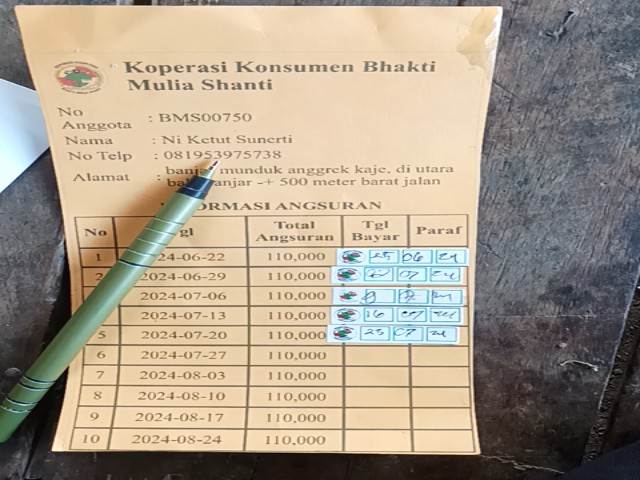 Koperasi Konsumen Bhakti
Mulia Shanti
No
Anggota : BMS00750
Nama : Ni Ketut Sunerti
No Telp : 081953975738
Alamat : banjar munduk anggrek kaje, di utara
bale banjar -+ 500 meter barat jalan
INFORMASI ANGSURAN
No Tgl Total Angsuran Tgl Bayar Paraf
1 2024-06-22 110,000 25 06 24
2 2024-06-29 110,000 07 24
2024-07-06 110,000 24
2024-07-13 110,000 16 07 24
5 2024-07-20 110,000 23 07 24
6 2024-07-27 110,000
7 2024-08-03 110,000
8 2024-08-10 110,000
9 2024-08-17 110,000
10 2024-08-24 110,000